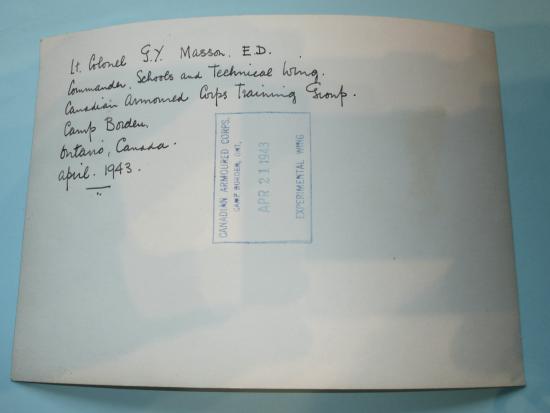 Lt. Colonel G.Y. Masson. E.D.
Commander, Schools and Technical Wing.
Canadian Armoured Corps Training Group.
Camp Borden,
Ontario, Canada.
April. 1943.
CANADIAN ARMOURED CORPS.
CAMP BORDEN, ONT.
APR 21 1943
EXPERIMENTAL WING